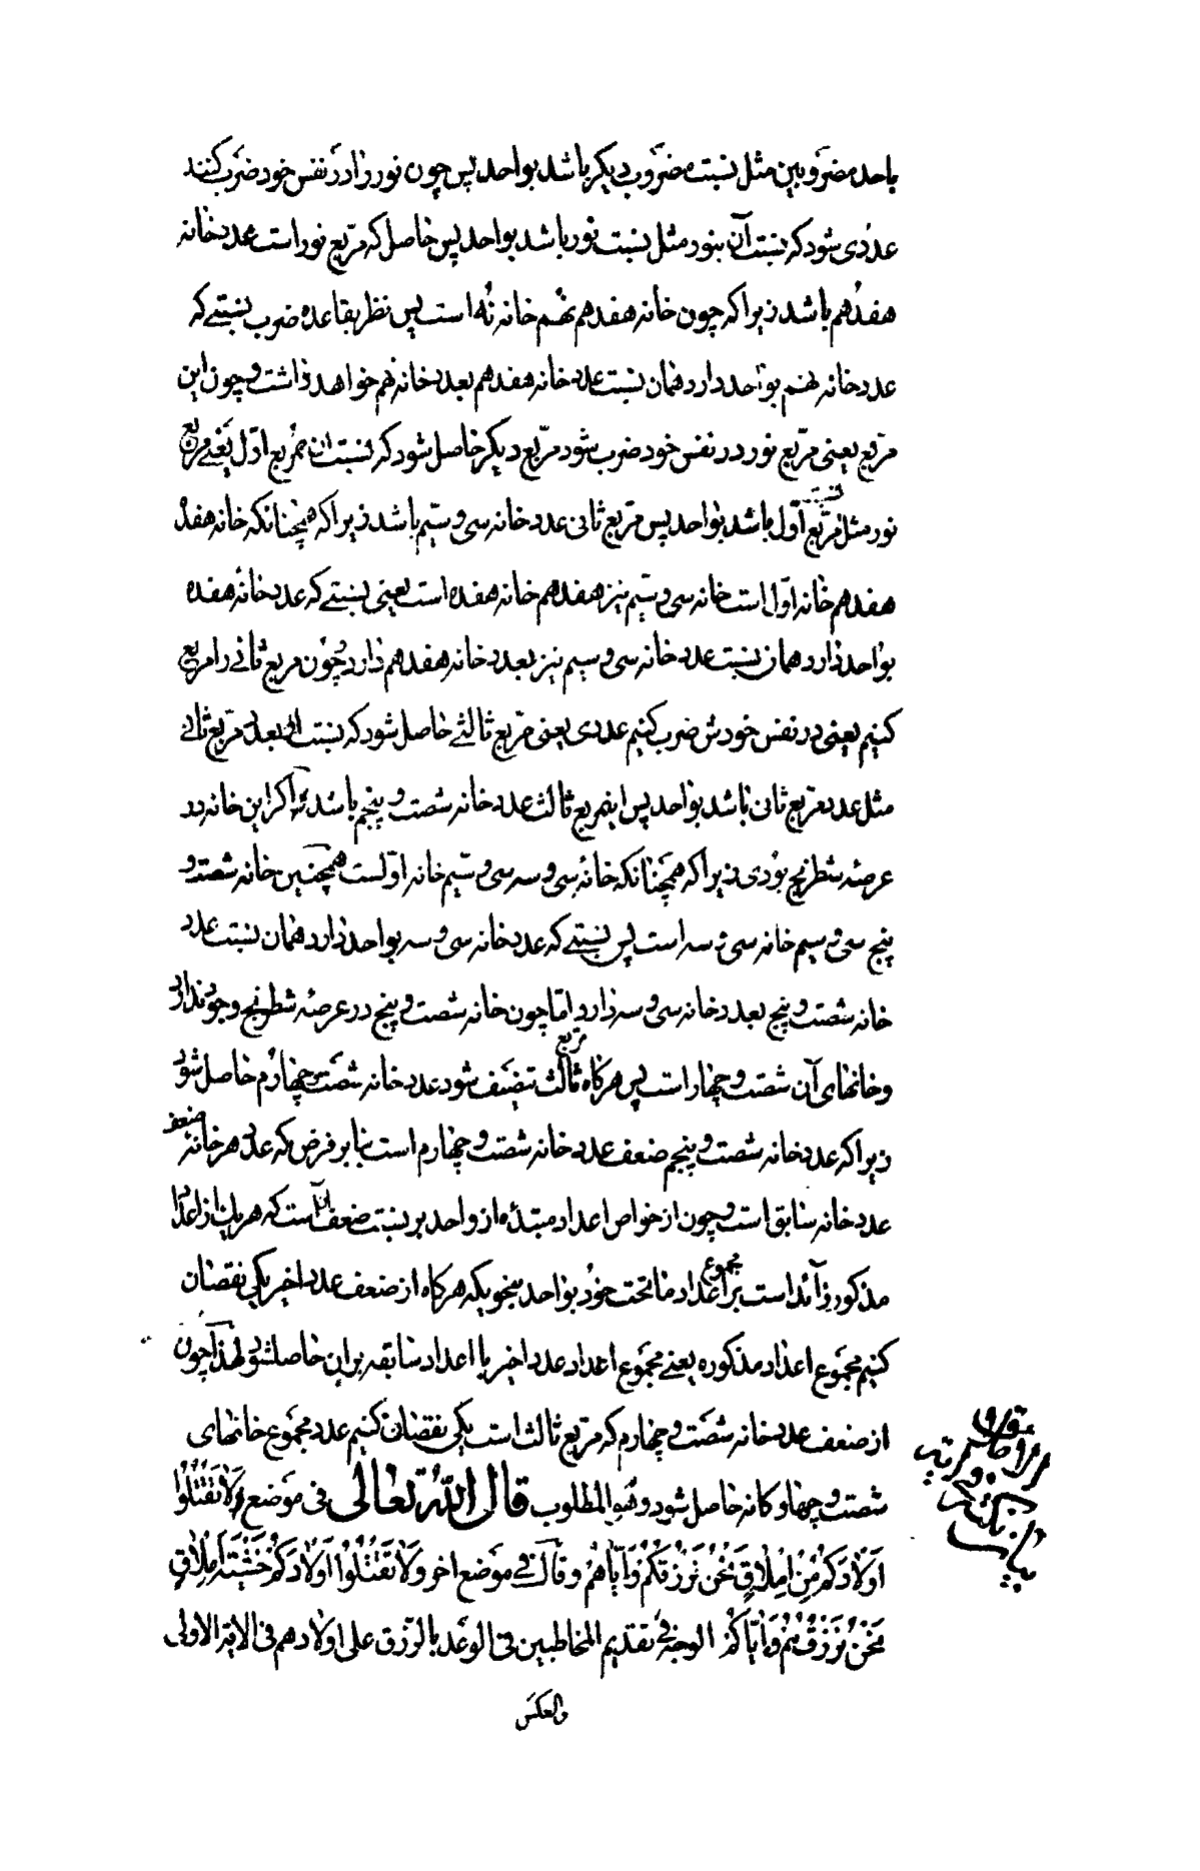 باحد مضروبین مثل نسبت مضروب دیگر باشد بواحد پس چون نور را در نفس خود ضرب کنند
عددی شود که نسبت آن بنور مثل نسبت نور باشد بواحد پس حاصل که مربع نور است عدد خانه
هفدهم باشد زیرا که چون خانه هفدهم نهم خانه نه است پس نظر بقاعده ضرب نسبتے که
عدد خانه نهم بواحد دارد همان نسبت عدد خانه هفدهم بعدد خانه نهم خواهد داشت و چون این
مربع یعنی مربع نور در نفس خود ضرب شود مربع دیگر حاصل شود که نسبت ان بمربع اول یعنے مربع
نور مثل نسبت مربع اول باشد بواحد پس مربع ثانی عدد خانه سی و سیم باشد زیرا که همچنانکه خانه هفده
هفدهم خانه اول است خانه سی و سیم نیز هفدهم خانه هفده است یعنی نسبتے که عدد خانه هفده
بواحد دارد همان نسبت عدد خانه سی و سیم نیز بعدد خانه هفدهم دارد و چون مربع ثانی را مربع
کنیم یعنی در نفس خودش ضرب کنیم عددی یعنی مربع ثالثے حاصل شود که نسبت ان بعدد مربع ثانی
مثل عدد مربع ثانی باشد بواحد پس این مربع ثالث عدد خانه شصت و پنجم باشد اگر این خانه در
عرصه شطرنج بودی زیرا که همچنانکه خانه سی و سه سی و سیم خانه اولست همچنین خانه شصت و
پنج سی و سیم خانه سی و سه است پس نسبتے که عدد خانه سی و سه بواحد دارد همان نسبت عدد
خانه شصت و پنج بعدد خانه سی و سه دارد اما چون خانه شصت و پنج در عرصه شطرنج وجود ندارد
و خانهای آن شصت و چهار است پس هرگاه مربع ثالث تنصیف شود عدد خانه شصت و چهارم حاصل شود
زیرا که عدد خانه شصت و پنجم ضعف عدد خانه شصت و چهارم است بنابر فرض که عدد هر خانه ضعف
عدد خانه سابق است و چون از خواص اعداد مبتدئه از واحد بر نسبت ضعف آنست که هر یک از اعداد
مذکور زائد است بر مجموع اعداد ماتحت خود بواحد بنحویکه هرگاه از ضعف عدد اخیر یکی نقصان
کنیم مجموع اعداد مذکوره یعنے مجموع اعداد عدد اخیر با اعداد سابقه بران حاصلشود لهذا چون
از ضعف عدد خانه شصت و چهارم که مربع ثالث است یکی نقصان کنیم عدد مجموع خانهای
شصت و چهارگانه حاصل شود و هو المطلوب قال الله تعالى فی موضع وَلاٰ تَقْتُلُوٓا
اَوْلاٰدَكُمْ مِنْ اِمْلاٰقٍ نَحْنُ نَرْزُقُكُمْ وَاِيّٰاهُمْ و قال فی موضع اخر وَلاٰ تَقْتُلُوٓا اَوْلاٰدَكُمْ خَشْيَةَ اِمْلاٰقٍ
نَحْنُ نَرْزُقُهُمْ وَاِيّٰاكُمْ الوجه فی تقدیم المخاطبین فی الوعد بالرزق علی اولادهم فی الایة الاولی
والعکس